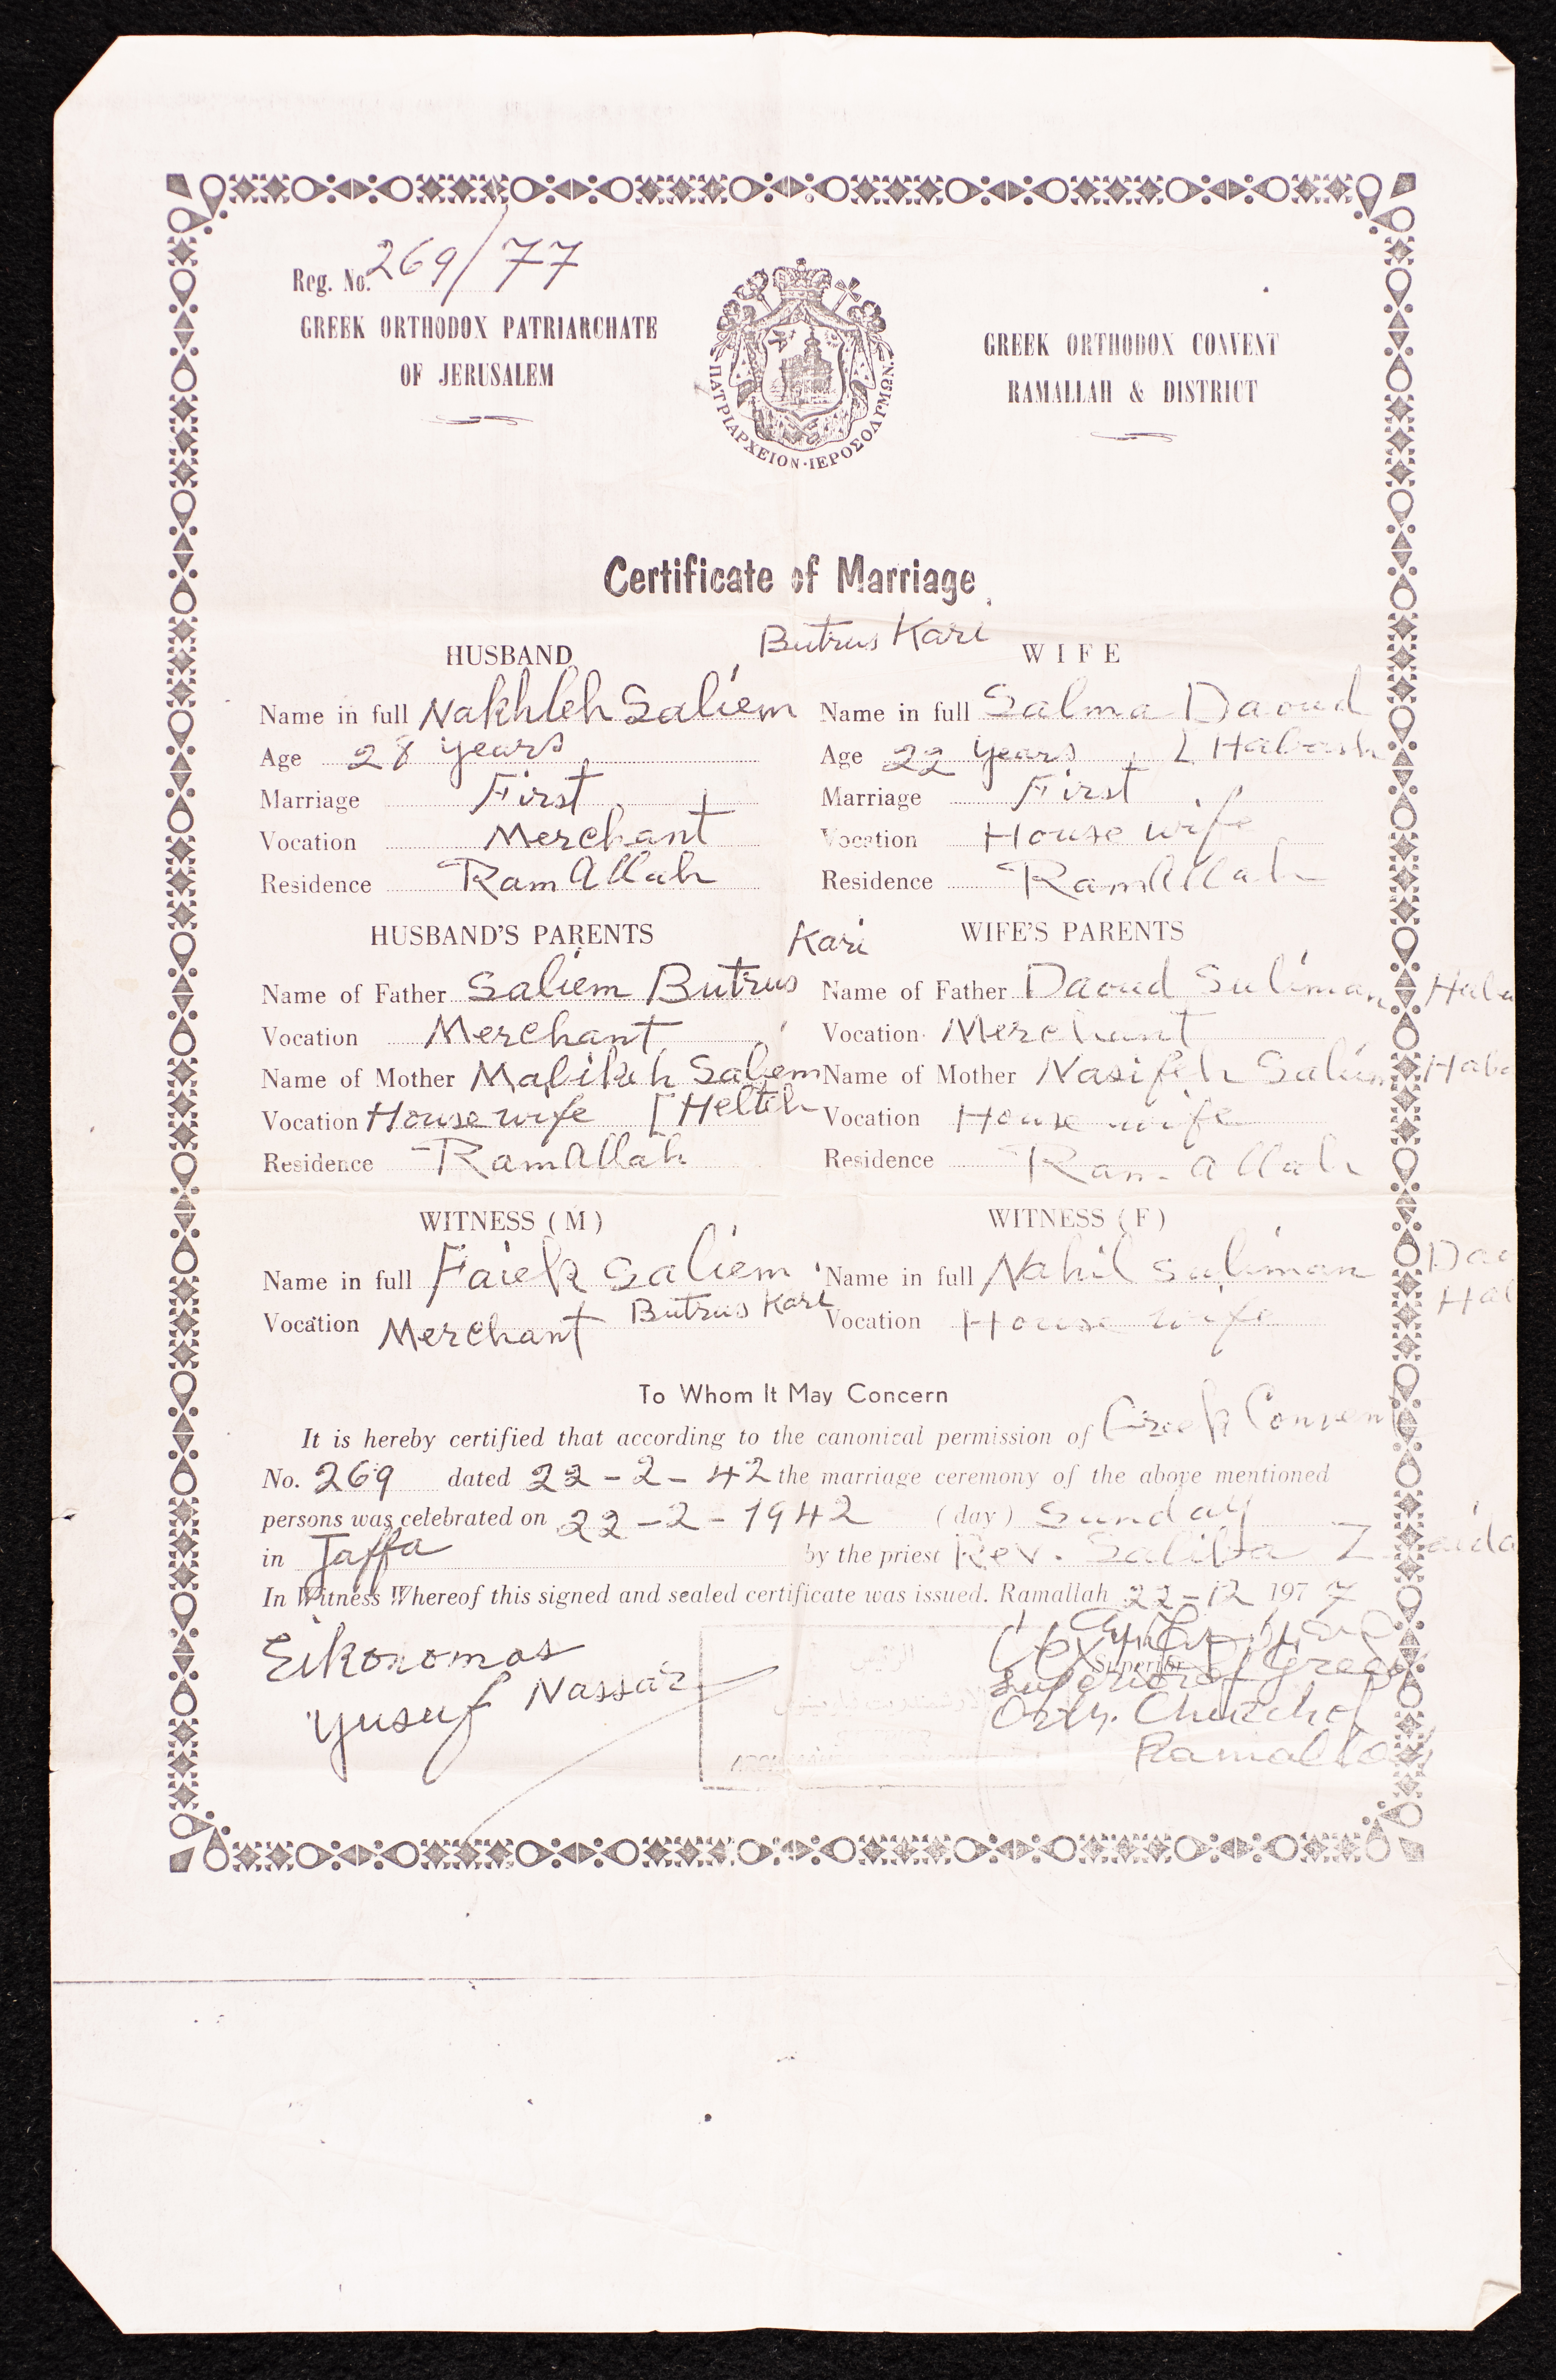 Reg. No. 269/77
GREEK ORTHODOX PATRIARCHATE
OF JERUSALEM
ΠΑΤΡΙΑΡΧΕΙΟΝ·ΙΕΡΟΣΟΛΥΜΩΝ
GREEK ORTHODOX CONVENT
RAMALLAH & DISTRICT
Certificate of Marriage
HUSBAND
Butrus Kari
Name in full Nakhleh Saliem
Age 28 years
Marriage First
Vocation Merchant
Residence RamAllah
WIFE
Name in full Salma Daoud
Age 22 years [ Habash
Marriage First
Vocation House wife
Residence RamAllah
HUSBAND'S PARENTS
Kari
Name of Father Saliem Butrus
Vocation Merchant
Name of Mother Malikeh Saliem
Vocation House wife [ Helteh
Residence RamAllah
WIFE'S PARENTS
Name of Father Daoud Suliman Haba
Vocation Merchant
Name of Mother Nasifeh Saliem Haba
Vocation House wife
Residence Ram-allah
WITNESS ( M )
Name in full Faiek Saliem
Butrus Kari
Vocation Merchant
WITNESS ( F )
Name in full Nahil Suliman Dao
Hab
Vocation House wife
To Whom It May Concern
It is hereby certified that according to the canonical permission of Greek Convent
No. 269 dated 22-2-42 the marriage ceremony of the above mentioned
persons was celebrated on 22-2-1942 (day) Sunday
in Jaffa by the priest Rev. Saliba Zaida
In Witness Whereof this signed and sealed certificate was issued. Ramallah 22-12 1977
Eikonomos
Yusuf Nassar
الرئيس
Superior
Superior of Greec
Orth. Church of
Ramallah